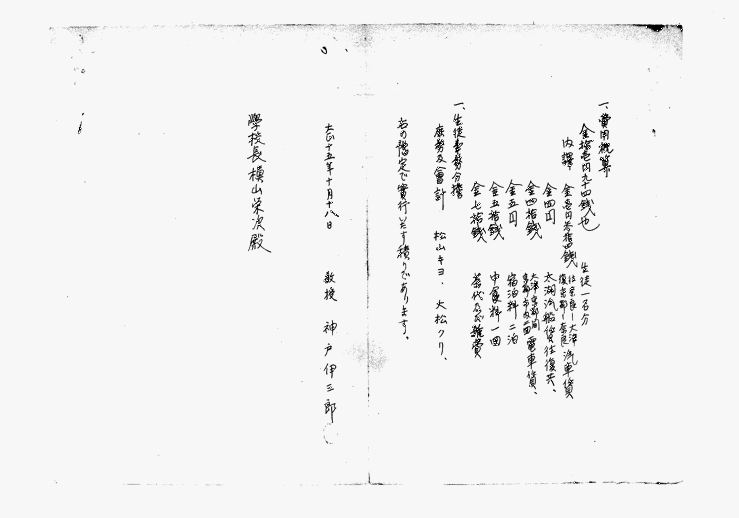 一、費用概算
金拾壱円九十四銭也 生徒一名分
内譯 金壱円参拾四銭 往奈良—大津 復京都—奈良 汽車賃
金四円 太湖汽船賃往復共、
金四拾銭 大津京都間 京都市内二回 電車賃、
金五円 宿泊料二泊
金五拾銭 中食料一回
金七拾銭 茶代及ビ雑費
一、生徒事務分擔
庶務及會計 松山キヨ、火松クリ、
右の豫定で實行いたす積りであります。
大正十五年十月十八日
教授 神戸伊三郎
學校長横山栄次殿